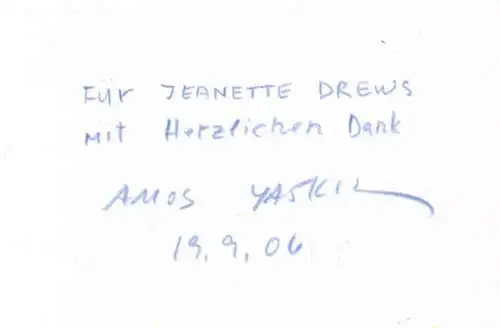 Für JEANETTE DREWS
mit Herzlichen Dank
AMOS YASKIL
19.9.06